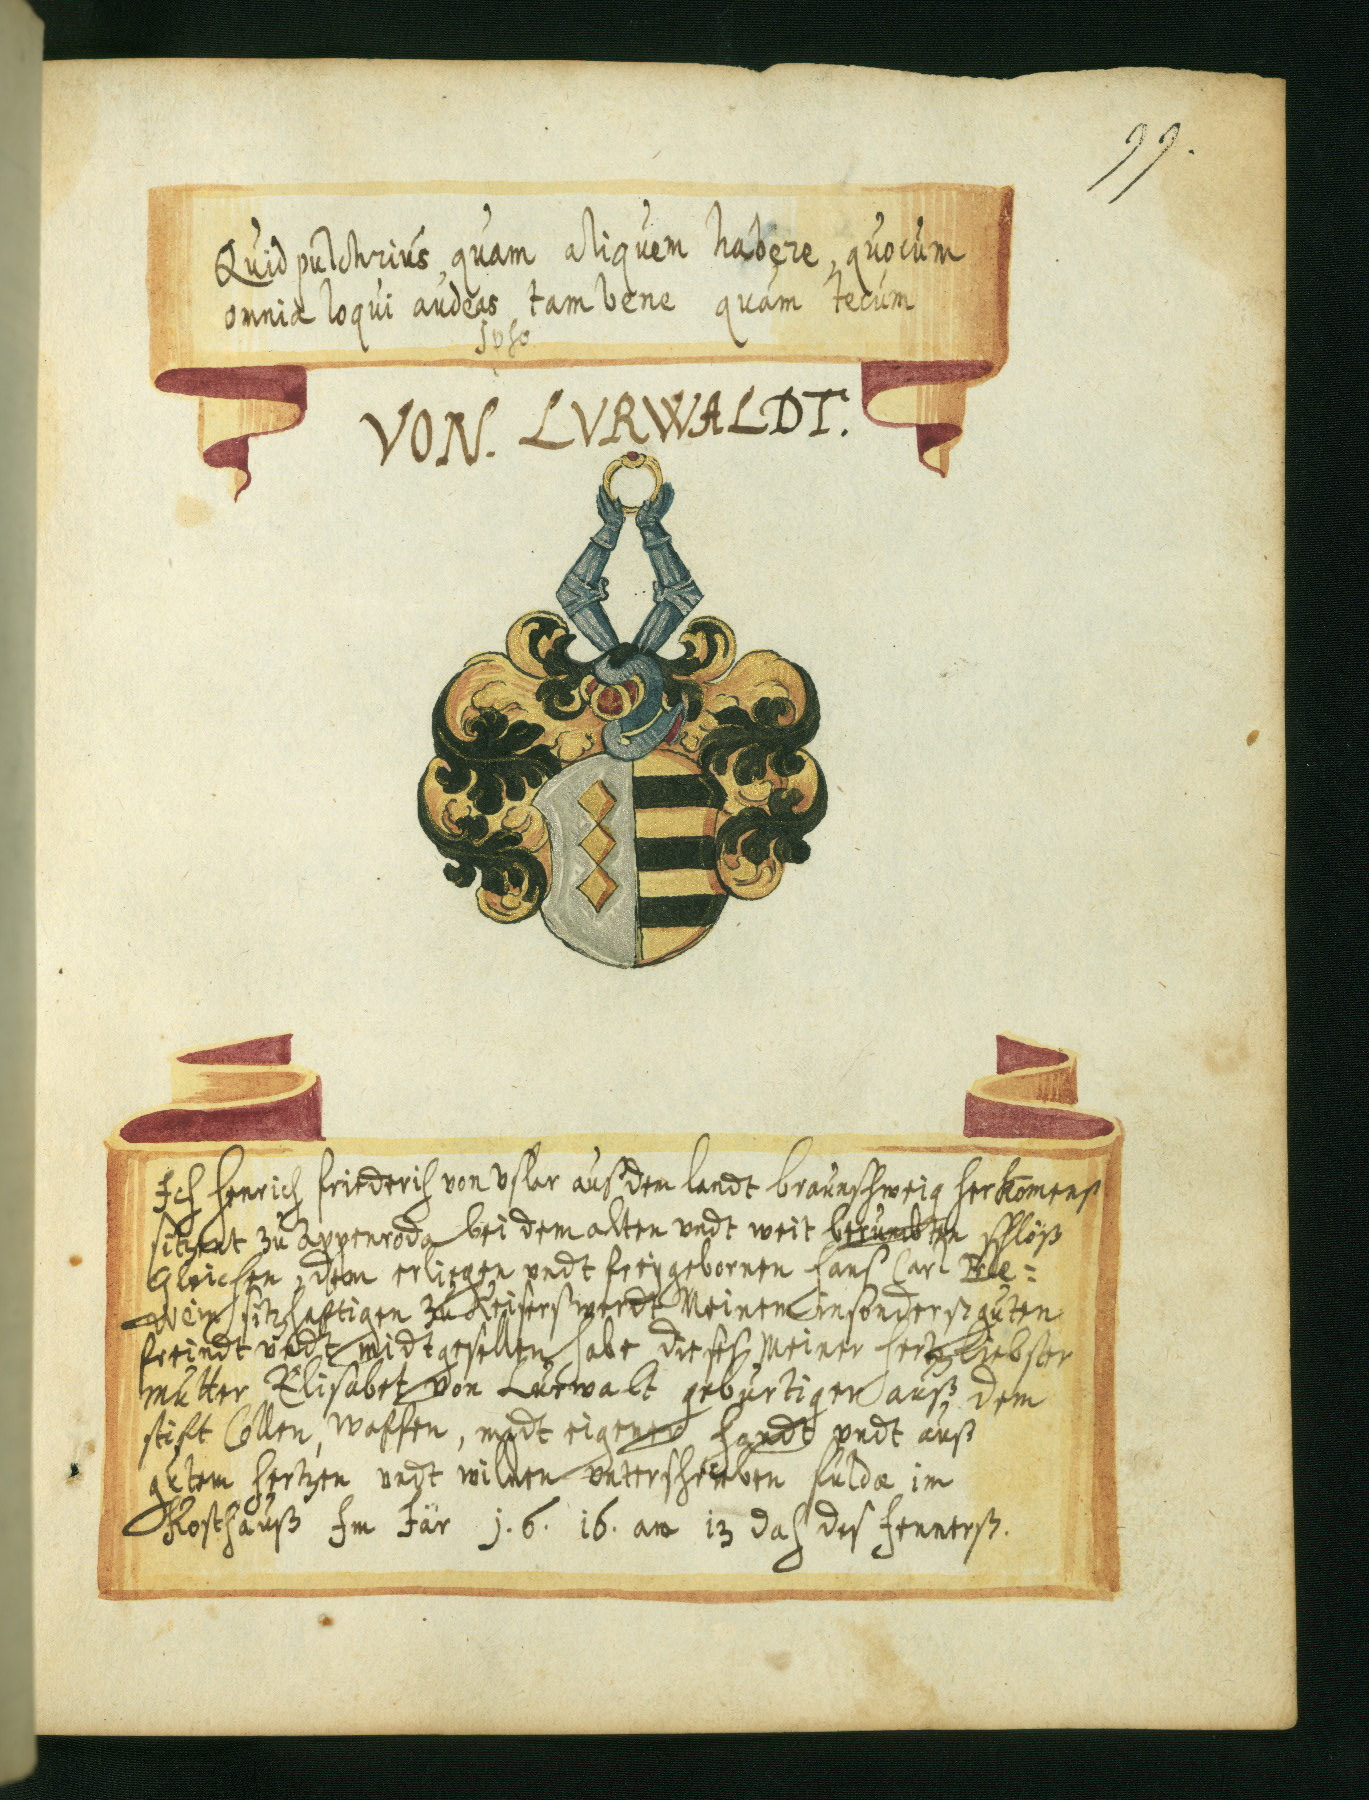 99.
Quid pulchrius, quam aliquem habere, quocum
omnia loqui audeas tam bene quam tecum
Ipso
VON. LVRWALDT.
Ich Henrich Friederich von Uslar auß dem landt braunschweig herkomens
sitzent zu Appenroda bei dem alten undt weit berumbten schlöß
Gleichen, dem erliegen undt freygebornen Hans Carl
sitzhaftigen zu Keiserßwerdt Meinem insonderß guten
freindt undt midtgesellen habe dieses Meiner hertzliebster
mutter Elisabet von Lurwalt geburtiger auß dem
stift Cöllen, waffen, midt eigener handt undt auß
gutem hertzen undt willen unterschrieben fuldæ im
Kosthauß Im Jär 1.6.16. am 13 dach des Jennerß.